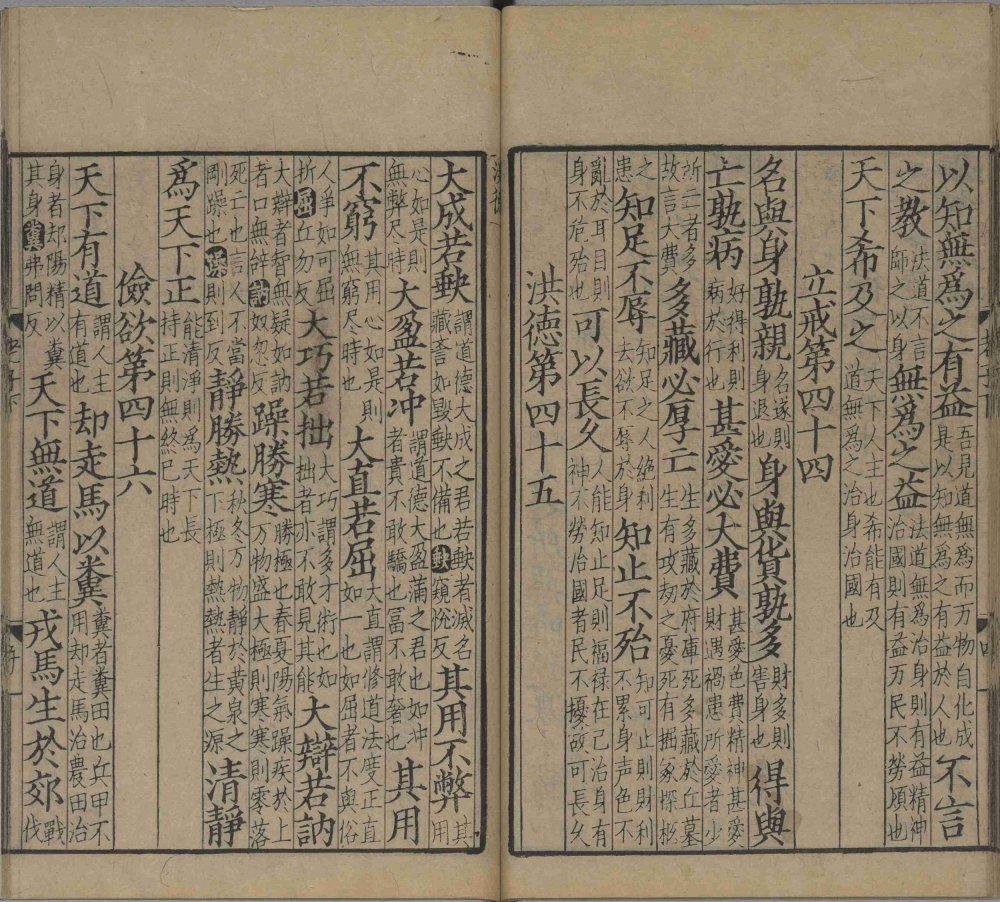 以知無爲之有益吾見道無爲而万物自化成是以知無爲之有益於人也不言
之教法道不言師之以身無爲之益法道無爲治身則有益精神治國則有益万民不勞煩也
天下希及之天下人主也希能有及道無爲之治身治國也
立戒第四十四
名與身孰親名遂則身退也身與貨孰多財多則害身也得與
亡孰病好得利則病於行也甚愛必大費甚愛色費精神甚愛財遇禍患所愛者少
所亡者多故言大費多藏必厚亡生多藏於府庫死多藏於丘墓生有攻刼之憂死有掘冢探柩
之患知足不辱知足之人絶利去欲不辱於身知止不殆知可止則財利不累身声色不
亂於耳目則身不危殆也可以長久人能知止足則福禄在己治身有神不勞治國者民不擾故可長久
洪德第四十五
大成若缺謂道德大成之君若缺者滅名藏譽如毀缺不備也缺窺恱反其用不弊其用
心如是則無弊尽時大盈若冲謂道德大盈滿之君也如冲者貴不敢驕也冨不敢奢也其用
不窮其用心如是則無窮尽時也大直若屈大直謂修道法度正直如一也如屈者不與俗
人爭如可屈折屈丘勿反大巧若拙大巧謂多才術也如拙者亦不敢見其能大辯若訥
大辯者智無疑如訥者口無辭訥奴忽反躁勝寒勝極也春夏陽氣躁疾於上万物盛大極則寒寒則零落
死亡也言人不當剛躁也躁則到反靜勝熱秋冬万物靜於黄泉之下極則熱熱者生之源清靜
爲天下正能清淨則爲天下長持正則無終已時也
儉欲第四十六
天下有道謂人主有道也却走馬以糞糞者糞田也兵甲不用却走馬治農田治
身者却陽精以糞其身糞弗問反天下無道謂人主無道也戎馬生於郊戰伐